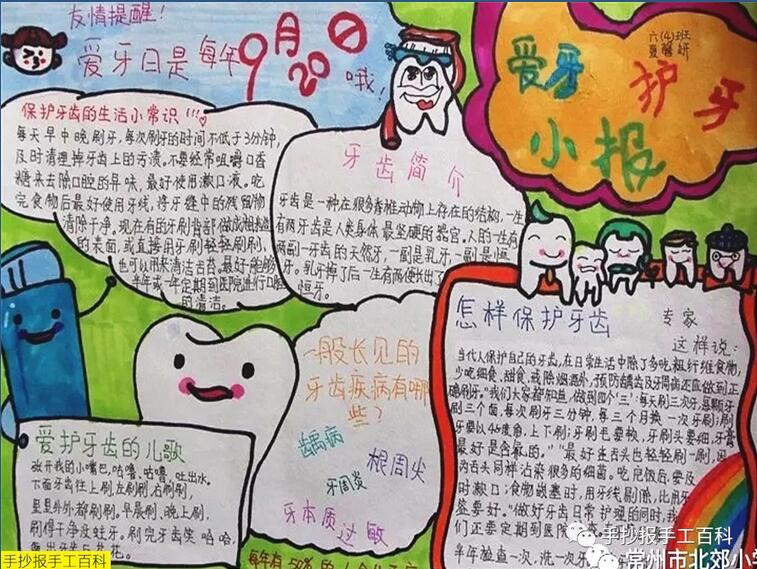 友情提醒！
爱牙日是每年9月20日哦！
六(4)班
爱牙护牙
小报
保护牙齿的生活小常识!!!
每天早中晚刷牙，每次刷牙的时间不低于3分钟，
及时清理掉牙齿上的污渍。不要经常咀嚼口香
糖来去除口腔的异味，最好使用漱口液。吃
完食物后最好使用牙线，将牙缝中的残留物
清除干净。现在有的牙刷背部做成粗糙
的表面，或直接用牙刷轻轻刷刷，
也可以用来清洁舌苔。最好能够
半年或一年定期到医院进行口腔
的清洁。
牙齿简介
牙齿是一种在很多脊椎动物上存在的结构，一生
有两牙齿是人类身体最坚硬的器官。人的一生有
两副一牙齿的天然牙，一副是乳牙，一副是恒
牙。乳牙掉了后一生有两便长出了
恒牙。
怎样保护牙齿
专家
这样说：
当代人保护自己的牙齿，在日常生活中除了多吃粗纤维食物，
少吃细食、甜食，戒除烟酒外，预防龋齿及牙周病还应做到正
确刷牙。"我们大家都知道，做到四个'三'：每天刷三次牙，每颗牙
刷三个面，每次刷牙三分钟，每三个月换一次牙刷；刷
牙要以45度角，上下刷；牙刷毛要软，牙刷头要细，牙膏
最好是含氟的。""最好连舌头也轻轻刷一刷，因
为舌头同样沾染很多的细菌。吃完饭后，要及
时漱口；食物嵌塞时，用牙线剔除，比用牙
签要好。"做好牙齿日常护理的同时，我
们还要定期到医院
半年检查一次，洗一次牙
一般长见的
牙齿疾病有哪
些？
龋齿病
牙周炎
根周炎
牙本质过敏
爱护牙齿的儿歌
张开我的小嘴巴，咕噜，咕噜，吐出水。
下面牙齿往上刷，左刷刷，右刷刷，
里里外外都刷刷，早晨刷，晚上刷，
刷得干净没蛀牙。刷完牙齿笑哈哈，
每年有
手抄报手工百科
手抄报手工百科
常州市北郊小学